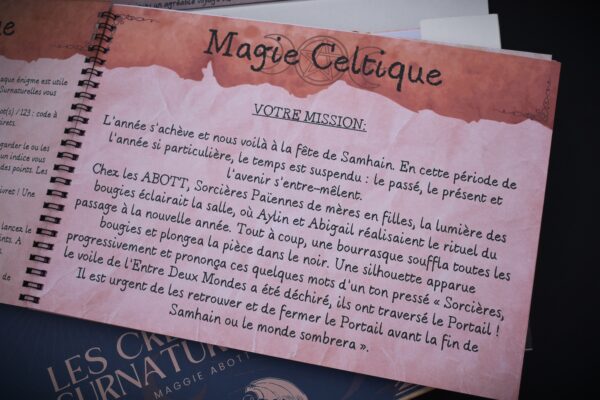 Magie Celtique
VOTRE MISSION:
L'année s'achève et nous voilà à la fête de Samhain. En cette période de
l'année si particulière, le temps est suspendu : le passé, le présent et
l'avenir s'entre-mêlent.
Chez les ABOTT, Sorcières Païennes de mères en filles, la lumière des
bougies éclairait la salle, où Aylin et Abigail réalisaient le rituel du
passage à la nouvelle année. Tout à coup, une bourrasque souffla toutes les
bougies et plongea la pièce dans le noir. Une silhouette apparue
progressivement et prononça ces quelques mots d'un ton pressé « Sorcières,
le voile de l'Entre Deux Mondes a été déchiré, ils ont traversé le Portail !
Il est urgent de les retrouver et de fermer le Portail avant la fin de
Samhain ou le monde sombrera ».
aque énigme est utile
Surnaturelles vous
ot(s) /123 : code à
garder le ou les
un indice vous
des points. Les
ivret ! Une
lancez le
LES
SURNATUR
MAGGIE ABOTT